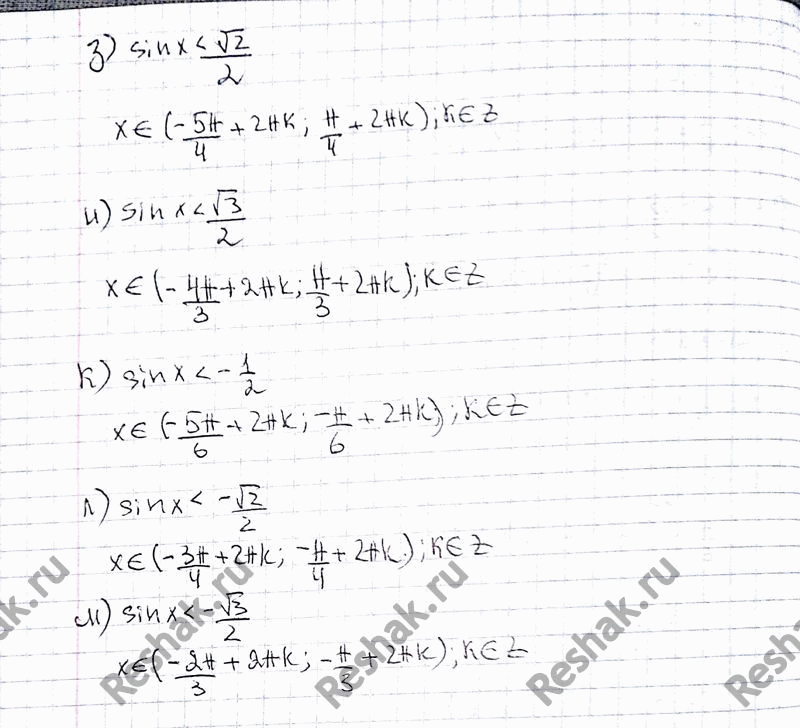 з) sin x < √2/2
x ∈ (-5π/4 + 2πk; π/4 + 2πk); k ∈ Z
и) sin x < √3/2
x ∈ (-4π/3 + 2πk; π/3 + 2πk); k ∈ Z
к) sin x < -1/2
x ∈ (-5π/6 + 2πk; -π/6 + 2πk); k ∈ Z
л) sin x < -√2/2
x ∈ (-3π/4 + 2πk; -π/4 + 2πk); k ∈ Z
м) sin x < -√3/2
x ∈ (-2π/3 + 2πk; -π/3 + 2πk); k ∈ Z
Reshak.ru
Reshak.ru
Reshak.ru
Reshak.ru